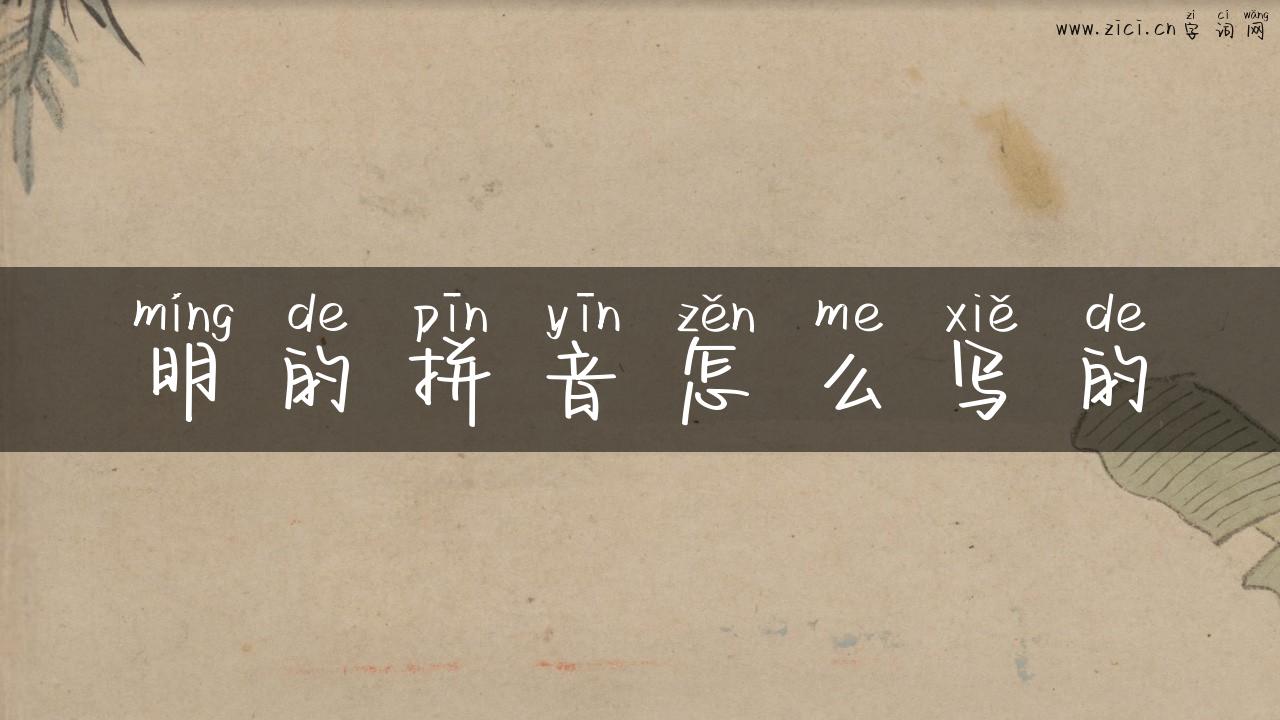 zì cí wǎng
www.zici.cn 字 词 网
míng de pīn yīn zěn me xiě de
明 的 拼 音 怎 么 写 的